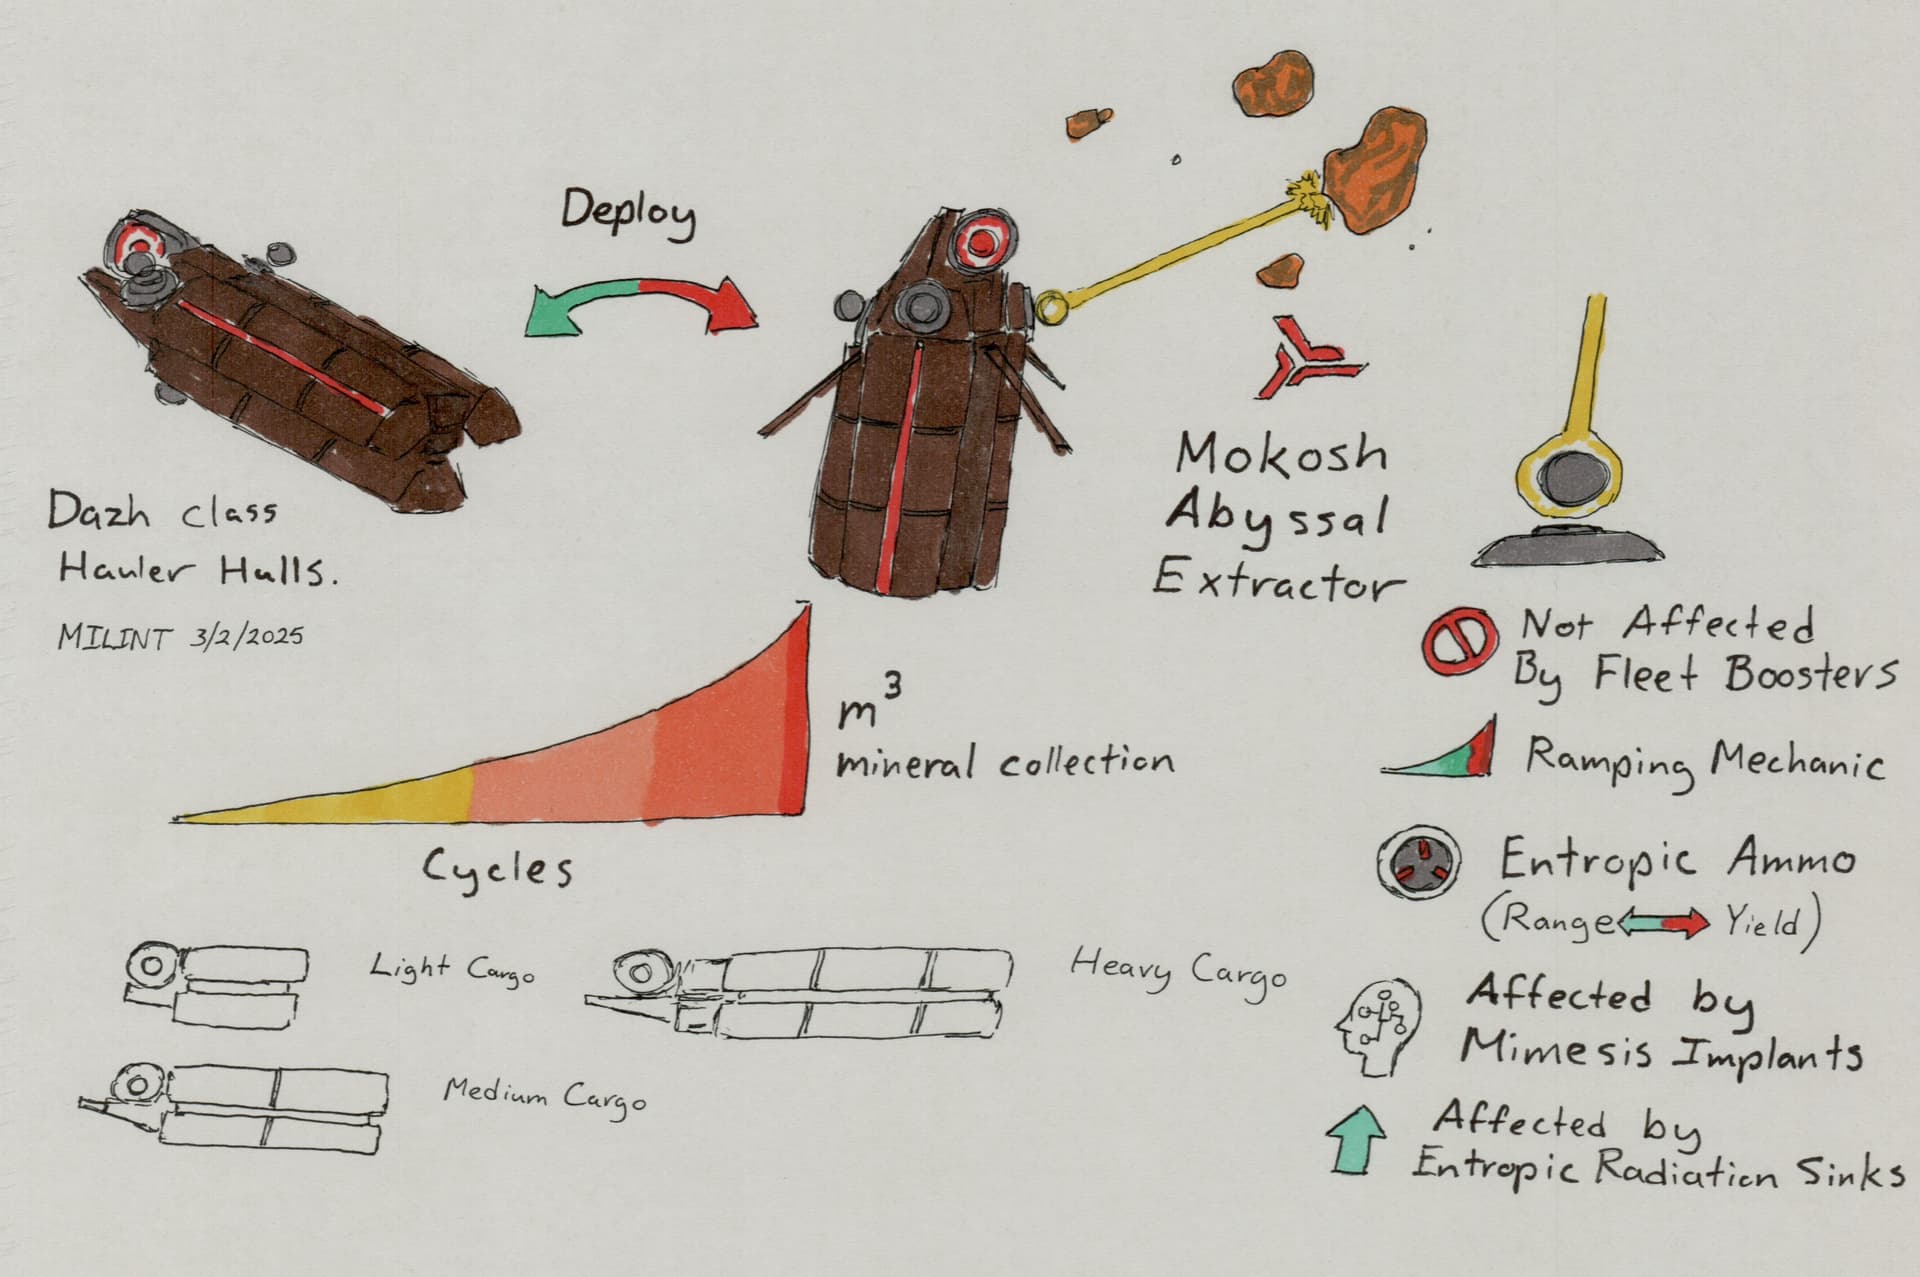 Deploy
Dazh class
Hauler Hulls.
MILINT 3/2/2025
Mokosh
Abyssal
Extractor
m³
mineral collection
Cycles
Not Affected
By Fleet Boosters
Ramping Mechanic
Entropic Ammo
(Range Yield)
Affected by
Mimesis Implants
Affected by
Entropic Radiation Sinks
Light Cargo
Heavy Cargo
Medium Cargo